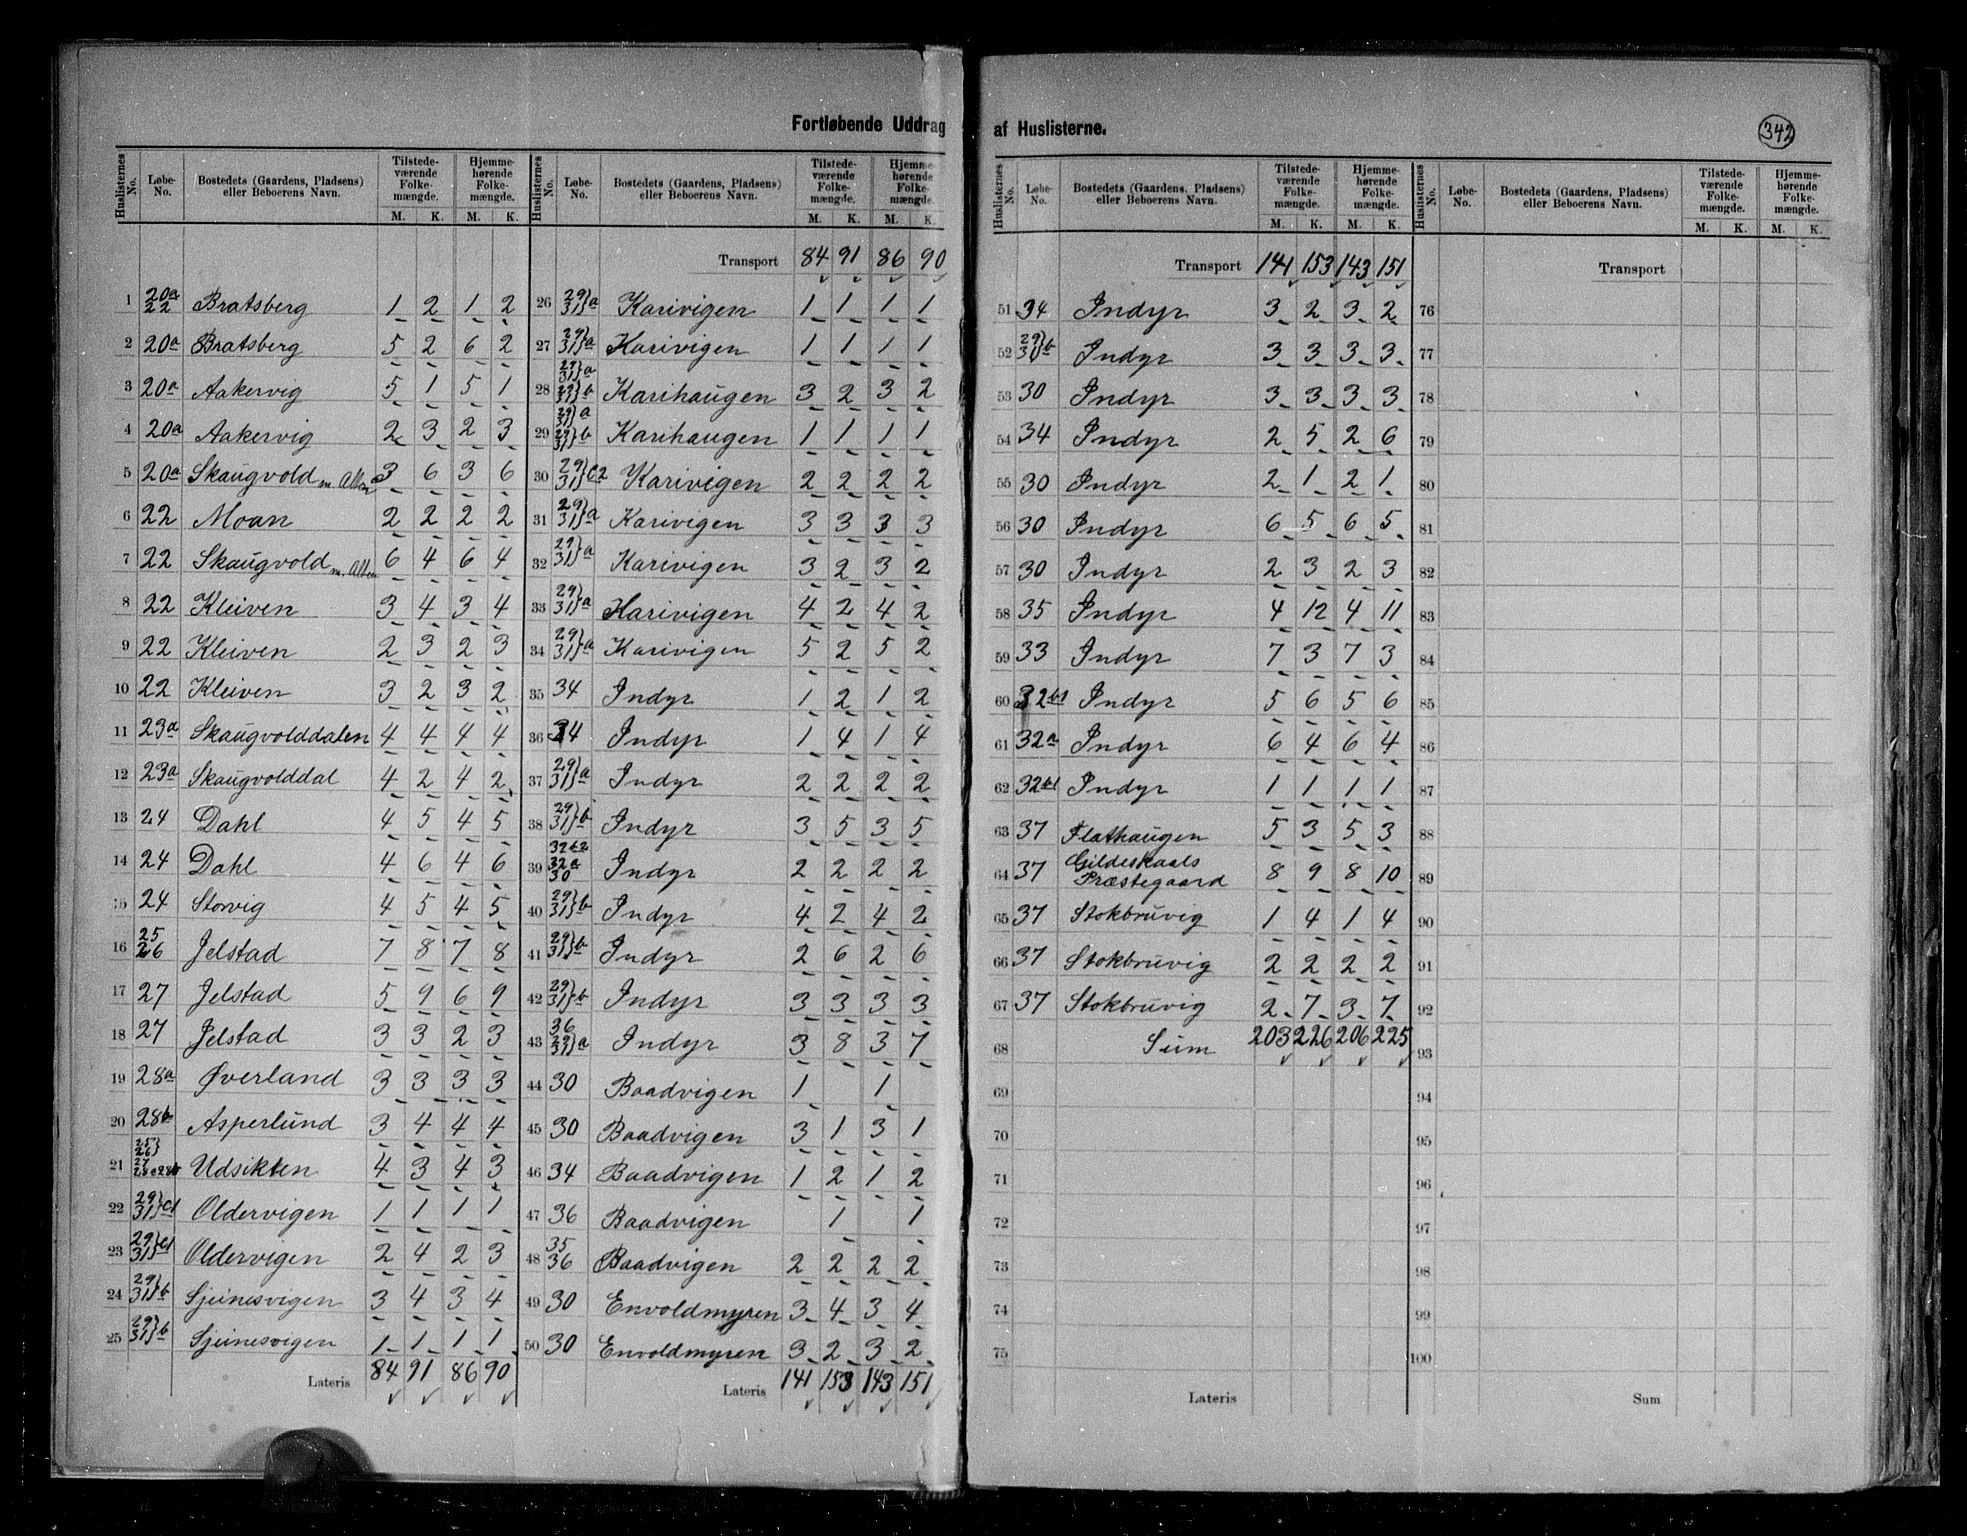 Fortløbende Uddrag af Huslisterne.
342
Huslisternes No. Løbe-No. Bostedets (Gaardens, Pladsens) eller Beboerens Navn. Tilstedeværende Folkemængde. M. K. Hjemmehørende Folkemængde. M. K.
1 20a 22 Bratsberg 1 2 1 2
2 20a Bratsberg 5 2 6 2
3 20a Aakervig 5 1 5 1
4 20a Aakervig 2 3 2 3
5 20a Skaugvold m. Alten 3 6 3 6
6 22 Moan 2 2 2 2
7 22 Skaugvold m. Alten 6 4 6 4
8 22 Kleiven 3 4 3 4
9 22 Kleiven 2 3 2 3
10 22 Kleiven 3 2 3 2
11 23a Skaugvolddalen 4 4 4 4
12 23a Skaugvolddal 4 2 4 2
13 24 Dahl 4 5 4 5
14 24 Dahl 4 6 4 6
15 24 Storvig 4 5 4 5
16 25 26 Jelstad 7 8 7 8
17 27 Jelstad 5 9 6 9
18 27 Jelstad 3 3 2 3
19 28a Øverland 3 3 3 3
20 28b Asperlund 3 4 4 4
21 25 26 27 28a 28b Udsikten 4 3 4 3
22 29 31}c1 Oldervigen 1 1 1 1
23 29 31}c1 Oldervigen 2 4 2 3
24 29 31}b Sjeinesvigen 3 4 3 4
25 29 31}b Sjeinesvigen 1 1 1 1
Lateris 84 91 86 90
Huslisternes No. Løbe-No. Bostedets (Gaardens, Pladsens) eller Beboerens Navn. Tilstedeværende Folkemængde. M. K. Hjemmehørende Folkemængde. M. K.
Transport 84 91 86 90
26 29 31}a Karivigen 1 1 1 1
27 29 31}a Karivigen 1 1 1 1
28 29 31}a 29 31}b Karihaugen 3 2 3 2
29 29 31}a 29 31}b Karihaugen 1 1 1 1
30 29 31}c2 Karivigen 2 2 2 2
31 29 31}a Karivigen 3 3 3 3
32 29 31}a Karivigen 3 2 3 2
33 29 31}a Karivigen 4 2 4 2
34 29 31}a Karivigen 5 2 5 2
35 34 Indyr 1 2 1 2
36 34 Indyr 1 4 1 4
37 29 31}a Indyr 2 2 2 2
38 29 31}b Indyr 3 5 3 5
39 32b2 32a 30 Indyr 2 2 2 2
40 29 31}b Indyr 4 2 4 2
41 29 31}b Indyr 2 6 2 6
42 29 31}b Indyr 3 3 3 3
43 36 29 31}a Indyr 3 8 3 7
44 30 Baadvigen 1 1
45 30 Baadvigen 3 1 3 1
46 34 Baadvigen 1 2 1 2
47 36 Baadvigen 1 1
48 35 36 Baadvigen 2 2 2 2
49 30 Envoldmyren 3 4 3 4
50 30 Envoldmyren 3 2 3 2
Lateris 141 153 143 151
Huslisternes No. Løbe-No. Bostedets (Gaardens, Pladsens) eller Beboerens Navn. Tilstedeværende Folkemængde. M. K. Hjemmehørende Folkemængde. M. K.
Transport 141 153 143 151
51 34 Indyr 3 2 3 2
52 29 31}b Indyr 3 3 3 3
53 30 Indyr 3 3 3 3
54 34 Indyr 2 5 2 6
55 30 Indyr 2 1 2 1
56 30 Indyr 6 5 6 5
57 30 Indyr 2 3 2 3
58 35 Indyr 4 12 4 11
59 33 Indyr 7 3 7 3
60 32b1 Indyr 5 6 5 6
61 32a Indyr 6 4 6 4
62 32b1 Indyr 1 1 1 1
63 37 Flathaugen 5 3 5 3
64 37 Gildeskaals Præstegaard 8 9 8 10
65 37 Stokbruvig 1 4 1 4
66 37 Stokbruvig 2 2 2 2
67 37 Stokbruvig 2 7 3 7
68 Sum 203 226 206 225
69
70
71
72
73
74
75
Lateris
Huslisternes No. Løbe-No. Bostedets (Gaardens, Pladsens) eller Beboerens Navn. Tilstedeværende Folkemængde. M. K. Hjemmehørende Folkemængde. M. K.
Transport
76
77
78
79
80
81
82
83
84
85
86
87
88
89
90
91
92
93
94
95
96
97
98
99
100
Sum